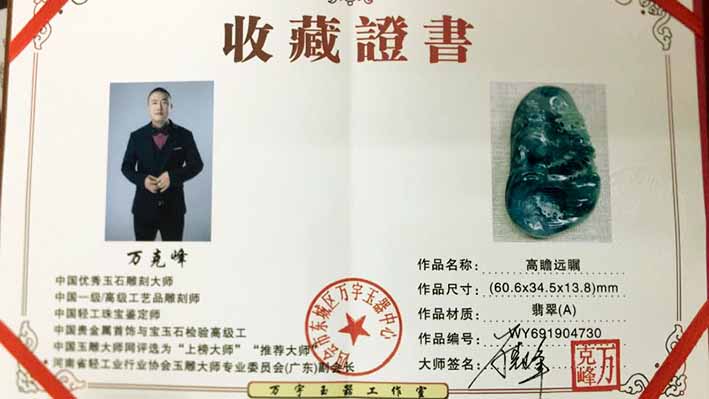 收藏證書
万克峰
中国优秀玉石雕刻大师
中国一级/高级工艺品雕刻师
中国轻工珠宝鉴定师
中国贵金属首饰与宝玉石检验高级工
中国玉雕大师网评选为“上榜大师” “推荐大师”
河南省轻工业行业协会玉雕大师专业委员会(广东)副会长
四会市东城区万宇玉器中心
作品名称: 高瞻远瞩
作品尺寸: (60.6x34.5x13.8)mm
作品材质: 翡翠(A)
作品编号: WY691904730
大师签名:
万克峰
万宇玉器工作室